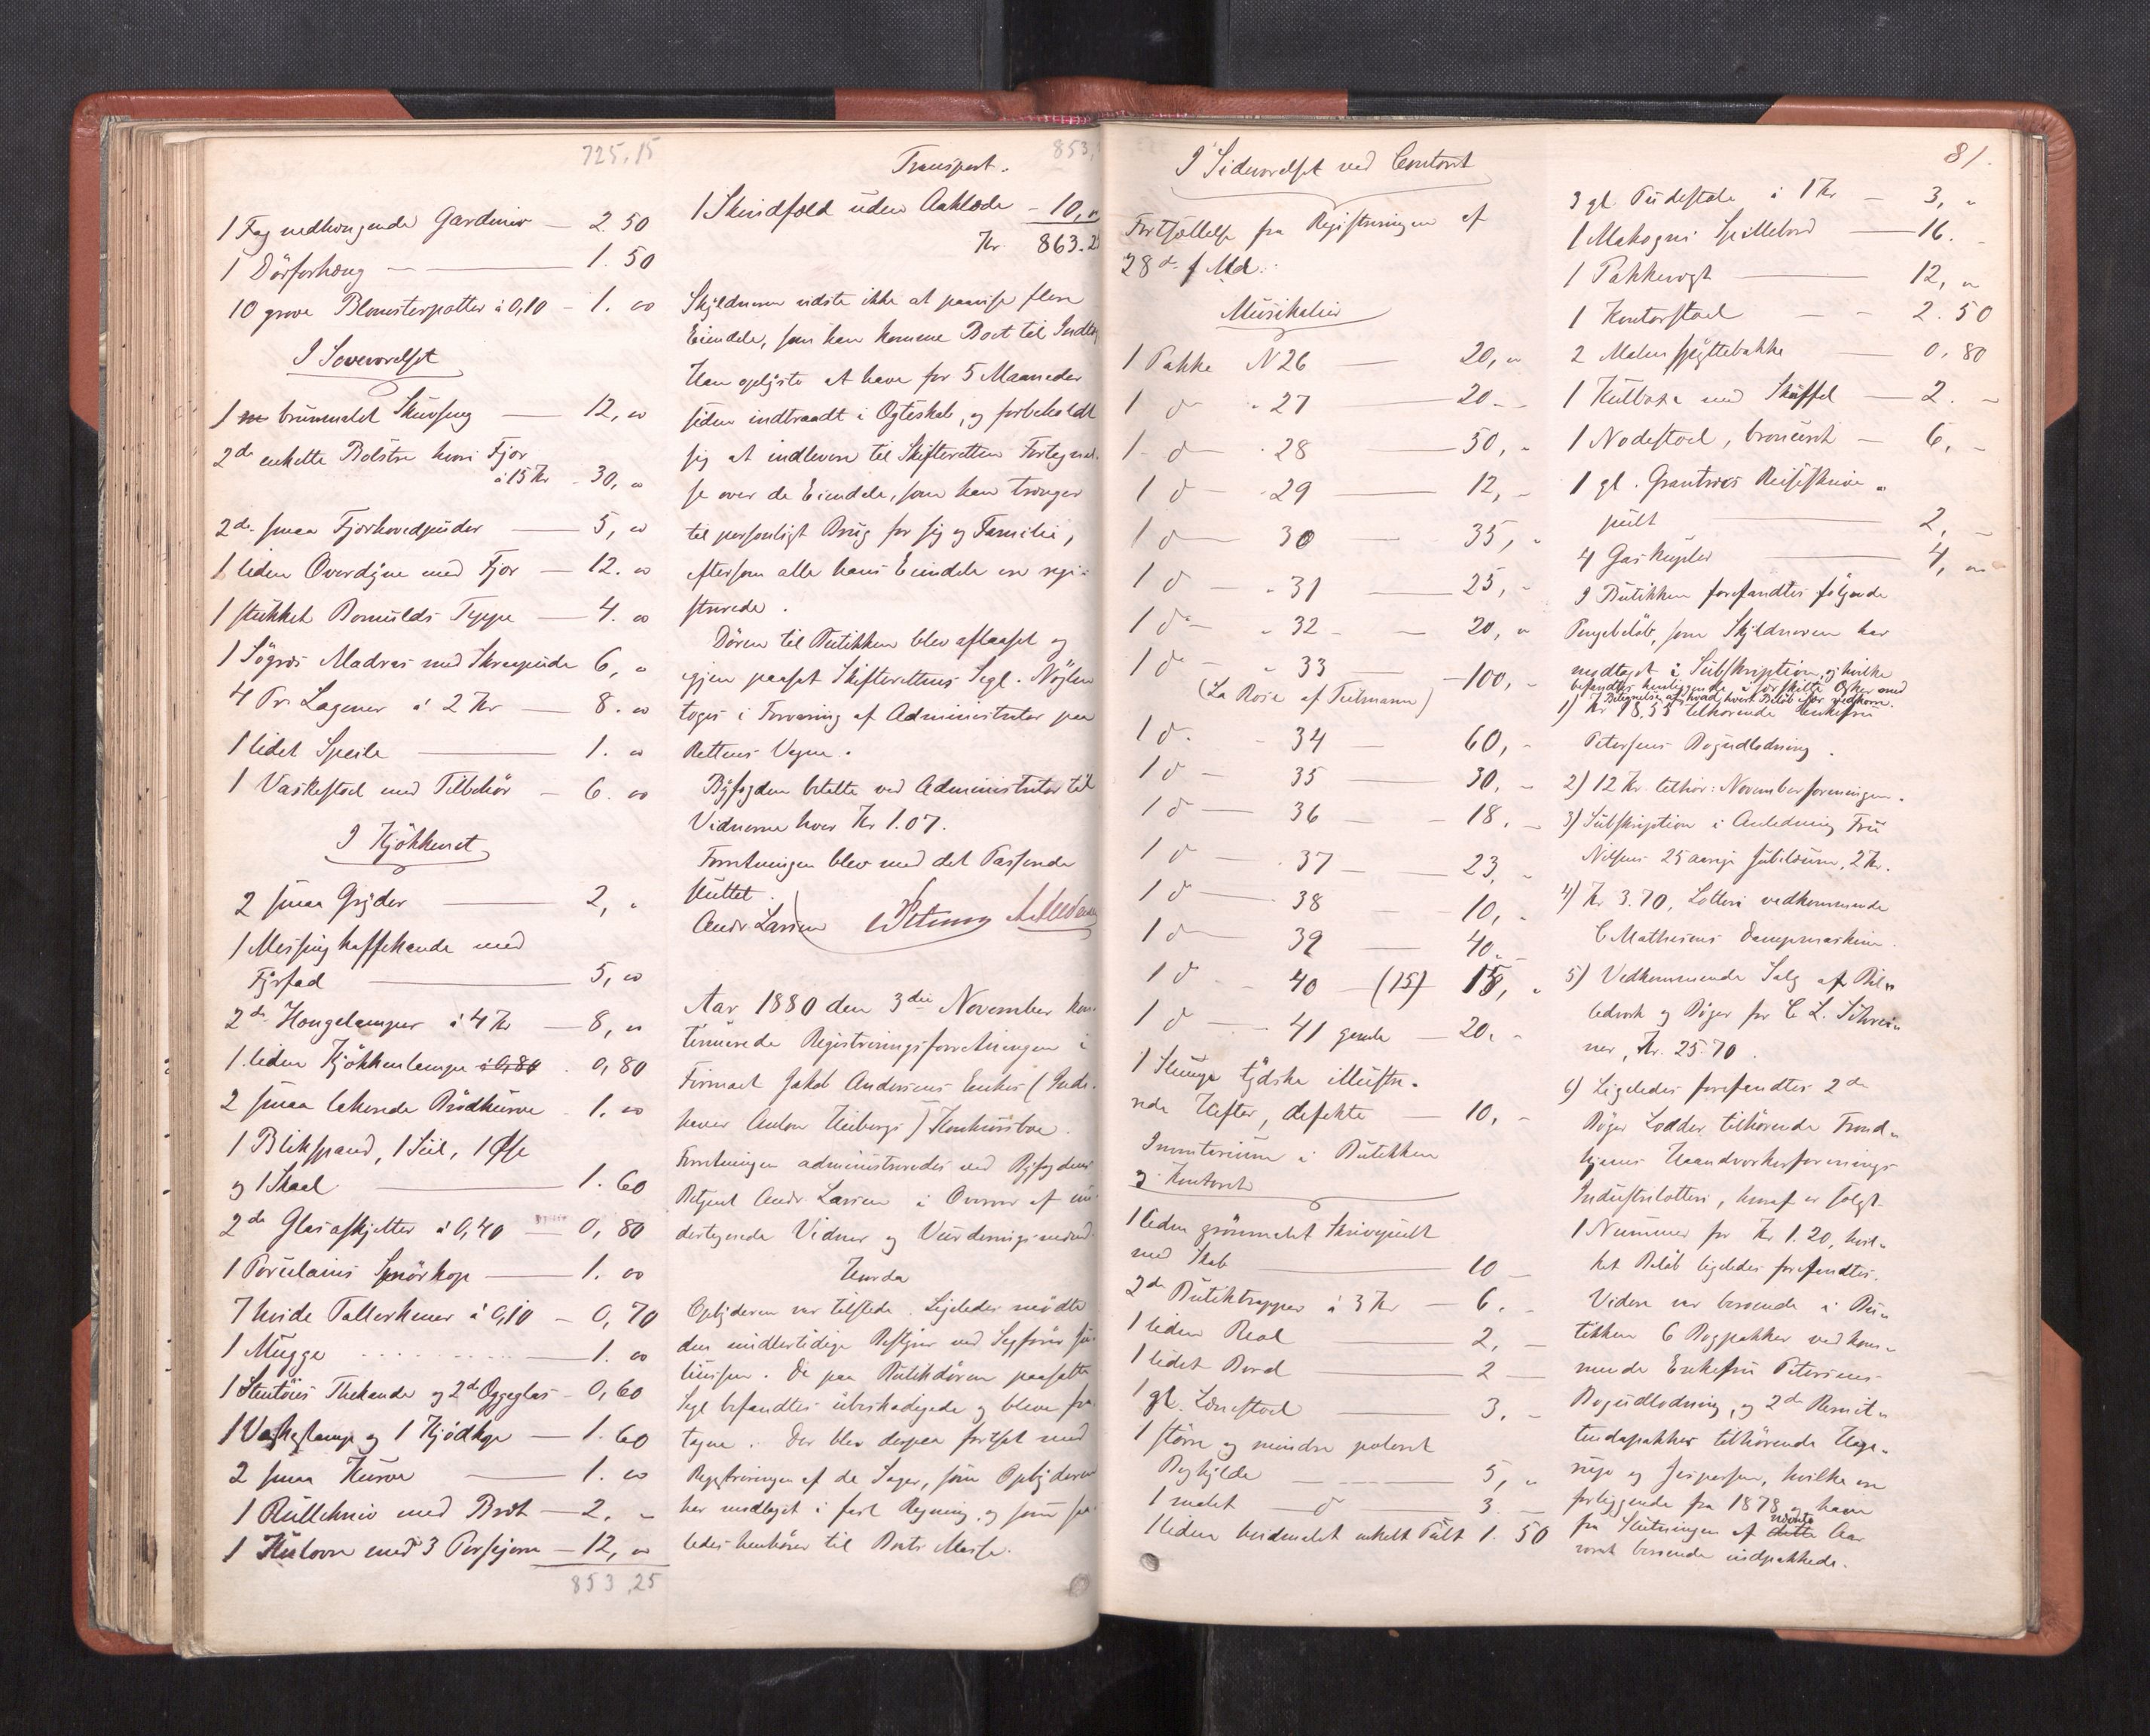 725,15
1 Fag nedhængende Gardiner — 2.50
1 Dörforhæng — 1.50
10 grove Blomsterpotter à 0,10 — 1. 00
I Soveværelset
1 brunmalet Skuvseng — 12, 00
2de enkelte Bolstre hvori Fjær
à 15 Kr — 30, "
2de smaa Fjærhovedpuder — 5, 00
1 liden Overdyne med Fjær — 12. 00
1 stukket Bomulds Teppe — 4. 00
1 Søgræs Madras med Skraapude 6, "
4 Par Lagener à 2 Kr — 8. 00
1 lidet Speile — 1. 00
1 Vaskestoel med Tilbehör — 6. 00
I Kjökkenet
2 smaa Gryder — 2, "
1 Messing kaffekande med
Fyrfad — 5, 00
2de Hængelamper à 4 Kr — 8, 00
1 liden Kjökkenlampe à 0,80 . 0,80
2 smaa lakerede Brödkurve . 1. 00
1 Blikspand, 1 Siil, 1 Øse
og 1 Skaal — 1. 60
2de Glasaskjetter à 0,40 — 0, 80
1 Porcelains Smörkop — 1. 00
7 hvide Tallerkener à 0,10 — 0, 70
1 Mugge — 1. 00
1 Stentöies Thekande og 2de Öggeglas — 0,60
1 Væglampe og 1 Kjødkop — 1. 60
2 smaa Kurve — 1. 00
1 Rulleknie med Bræt — 2. "
1 Kulovn med 3 Persjern — 12, 00
853,25
Transport. 853,
1 Skindfæld uden Aaklæde — 10, "
Kr. 863.25
Skyldneren vidste ikke at paavise flere
Eiendele, som kan komme Boet til Indtægt
Han oplyste at have for 5 Maaneder
siden indtraadt i Ægteskab, og forbeholdt
sig at indlevere til Skifteretten Fortegnel-
se over de Eiendele, som han trænger
til personligt Brug for sig og Familie,
eftersom alle hans Eiendele ere regi-
strerede.
Dören til Butikken blev aflaaset og
igjen paasat Skifterettens Segl. Nøglen
toges i Forvaring af Administrator paa
Rettens Vegne.
Byfogden betalte ved Administrator til
Vidnerne hver Kr 1.07.
Forretningen blev med det Passerede
sluttet.
Andr Larsen
Aar 1880 den 3die November kon-
tinuerede Registreringsforretningen i
Firmaet Jakob Andersens Enkes (Inde-
haver Anton Heibergs) Konkursbo.
Forretningen administreredes ved Byfogdens
Betjent Andr Larsen i Overvær af un-
dertegnede Vidner og Vurderingsmænd
Hvorda
Opbyderen var tilstede. Ligeledes mødte
den midlertidige Bestyrer ved Sagfører
. De paa Butikdören paasatte
Segl befandtes ubeskadigede og bleve fra-
tagne. Der blev derpaa fortsat med
Registreringen af de Sager, som Opbyderen
har modtaget i fast Regning, og som saa-
ledes henhører til Boets Masse.
81.
I Sideværelset ved Contoret
Fortsættelse fra Registreringen af
28de f Md.:
Musikalier
1 Pakke N 26 — 20, "
1 do " 27 — 20 —
1 do " 28 — 50, "
1 do " 29 — 12, —
1 do 30 — 35, "
1 do " 31 — 25, "
1 do " 32 — 20, "
1 do " 33 — 100, —
(La Rose af Tutmann)
1 do " 34 — 60, —
1 do 35 — 30, —
1 do 36 — 18. —
1 do 37 — 23, "
1 do 38 — 10, "
1 do 39 — 40. —
1 do 40 — (15) 15, "
1 do 41 gamle — 20. —
1 Slump tydske illustre-
rede Hefter, defekte — 10, —
Inventarium i Butikken
og Kontoret
1 liden grönmalet Skrivepult
med Skab — 10 —
2de Butiktrapper à 3 Kr — 6. —
1 liden Reol — 2, —
1 lidet Bord — 2 —
1 gl. Lænestoel — 3, —
1 större og mindre poleret
Boghylde — 5, "
1 malet do 3. —
1 liden hvidmalet enkelt Pult 1. 50
3 gl Pudestole à 1 Kr — 3, "
1 Mahogni Spillebord — 16. —
1 Pakkevægt — 12, "
1 Kontorstoel — 2. 50
2 Malen Spyttebakke — 0, 80
1 Kulboxe med Skuffel — 2. —
1 Nodestoel, bronceret — 6, —
1 gl. Grantræes Reiseskrive-
pult — 2, —
4 Gaskupler — 4, "
I Butikken forefandtes fölgende
Pengebeløb, som Skyldneren har
modtaget i Subskription, og hvilke
befandtes henliggende i særskilte Æsker med
Betegnelse af hvad hvert Beløb især vedkom.
1) Kr 18,55 tilhørende Enkefru
Petersens Bogudlodning.
2) 12 Kr. tilhör: Novemberforeningen.
3) Subskription i Anledning Fru
Nilsens 25 aarige Jubilæum, 2 Kr.
4) Kr 3.70, Lotteri vedkommende
C Mathisens Dampmaskine.
5) Vedkommende Salg af Bil-
ledværk og Bøger for C L. Schrei-
ner, Kr. 25.70.
6) Ligeledes forefandtes 2de
Bøger Lodder tilhörende Trond-
hjems Haandværkerforenings
Industrilotteri, hvoraf er solgt
1 Nummer for Kr 1.20, hvil-
ket Beløb ligeledes forefandtes.
Videre var beroende i Bu-
tikken 6 Bogpakker vedkom-
mende Enkefru Petersens
Bogudlodning, og 2de Remit-
tendapakker tilhörende Hage-
rup og Jespersen, hvilke ere
forliggende fra 1878 og have
fra Slutningen af næste Aar
været beroende indpakkede.